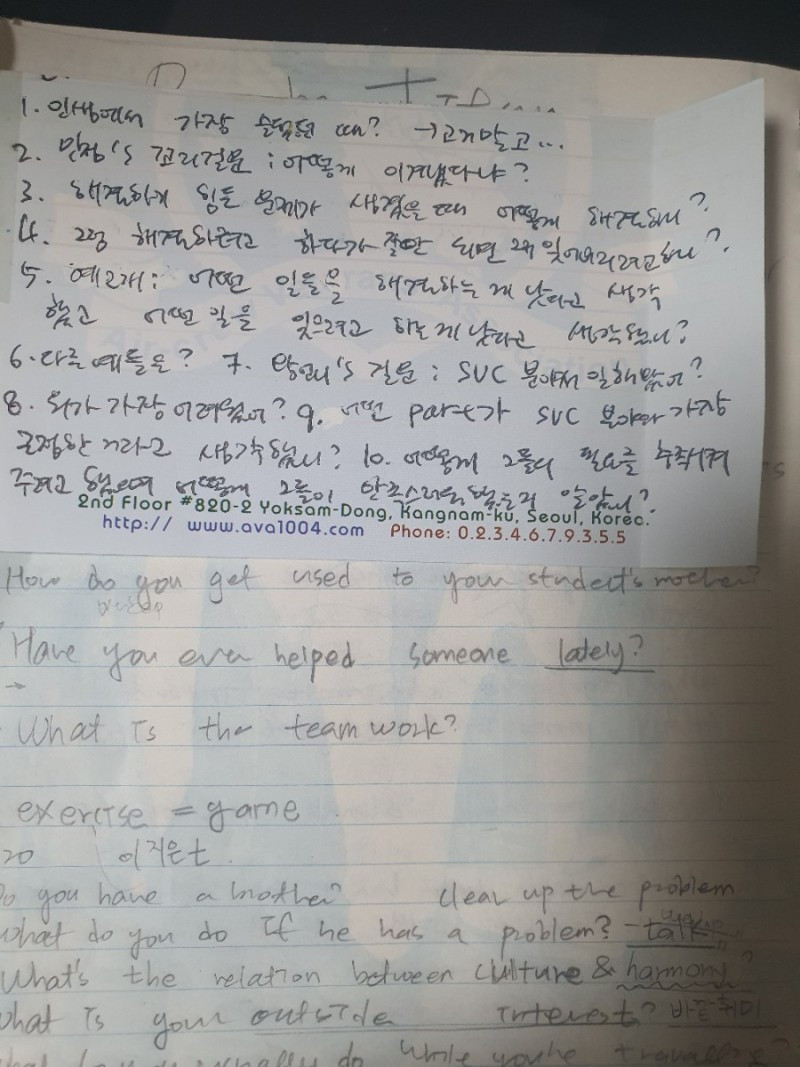 1. 인생에서 가장 슬펐던 때? → 고거말고...
2. 민정's 꼬리질문 : 어떻게 이겨냈다냐?
3. 해결하기 힘든 문제가 생겼을 때 어떻게 해결하니?
4. 그럼 해결하려고 하다가 잘 안 되면 왜 잊어버리려고 하니?
5. 예고개: 어떤 일들을 해결하는 게 낫다고 생각
했고 어떤 일을 잊으려고 하는게 낫다고 생각했니?
6. 다른 예들은? 7. 질문 : SVC 분야서 일해봤어?
8. 뭐가 가장 어려웠어? 9. 어떤 part가 SVC 분야의 가장
긍정한 거라고 생각했니? 10. 어떻게 그들의 필요를 충족시켜
주려고 했으며 어떻게 그들이 만족스러워 했는지 알았니?
2nd Floor #820-2 Yoksam-Dong, Kangnam-ku, Seoul, Korea.
http:// www.ava1004.com Phone: 0.2.3.4.6.7.9.3.5.5
How do you get used to your student's mother?
Have you ever helped someone lately?
→
What is the team work?
exercise = game
20 이지은t.
Do you have a brother? clear up the problem
What do you do If he has a problem? - talk
What's the relation between culture & harmony?
What is your outside interest? 바깥취미
usually do while you're travelling?